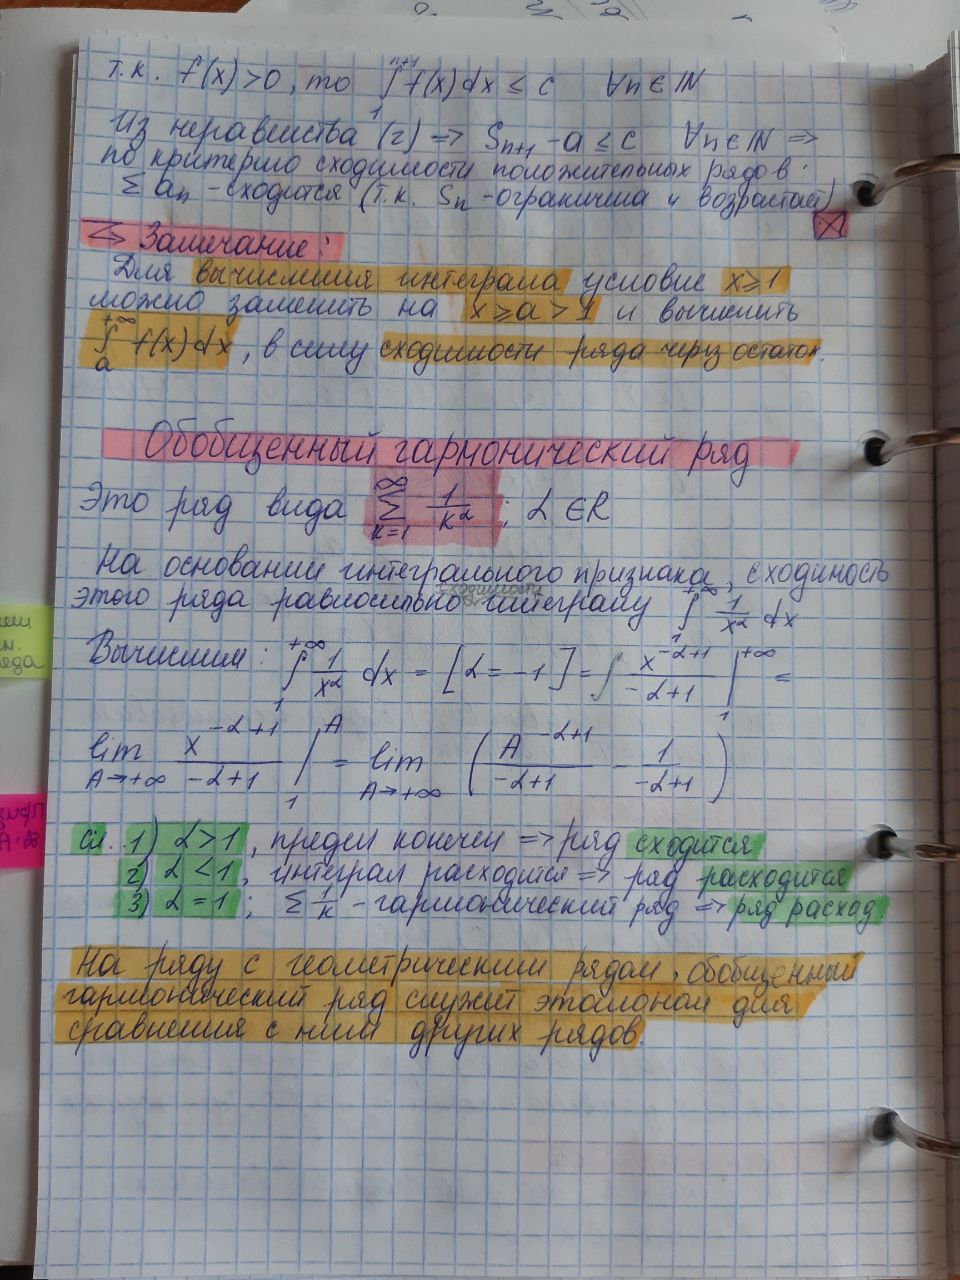 т.к. f(x)>0, то ∫₁ⁿ⁺¹ f(x)dx ≤ c ∀n∈ℕ
Из неравенства (2) => Sₙ₊₁ - a ≤ c ∀n∈ℕ =>
по критерию сходимости положительных рядов:
Σ aₙ - сходится (т.к. Sₙ - ограничена и возрастает)
Замечание:
Для вычисления интеграла условие x⩾1
можно заменить на x⩾a>1 и вычислить
∫ₐ⁺∞ f(x)dx, в силу сходимости ряда через остаток.
Обобщенный гармонический ряд
Это ряд вида ∑ₖ₌₁^∞ 1/k^α; α ∈ R
На основании интегрального признака, сходимость
этого ряда равносильно сходимости интегралу ∫₁⁺∞ 1/x^α dx
Вычислим: ∫₁⁺∞ 1/x^α dx = [α = -1] = ∫ x^(-α+1)/(-α+1) |₁⁺∞ =
lim A→+∞ x^(-α+1)/(-α+1) |₁ᴬ = lim A→+∞ (A^(-α+1)/(-α+1) - 1/(-α+1))
сл. 1) α>1, предел конечен => ряд сходится
2) α<1, интеграл расходится => ряд расходится
3) α=1; Σ 1/k - гармонический ряд => ряд расход.
На ряду с геометрическим рядом, обобщенный
гармонический ряд служит эталоном для
сравнения с ним других рядов.